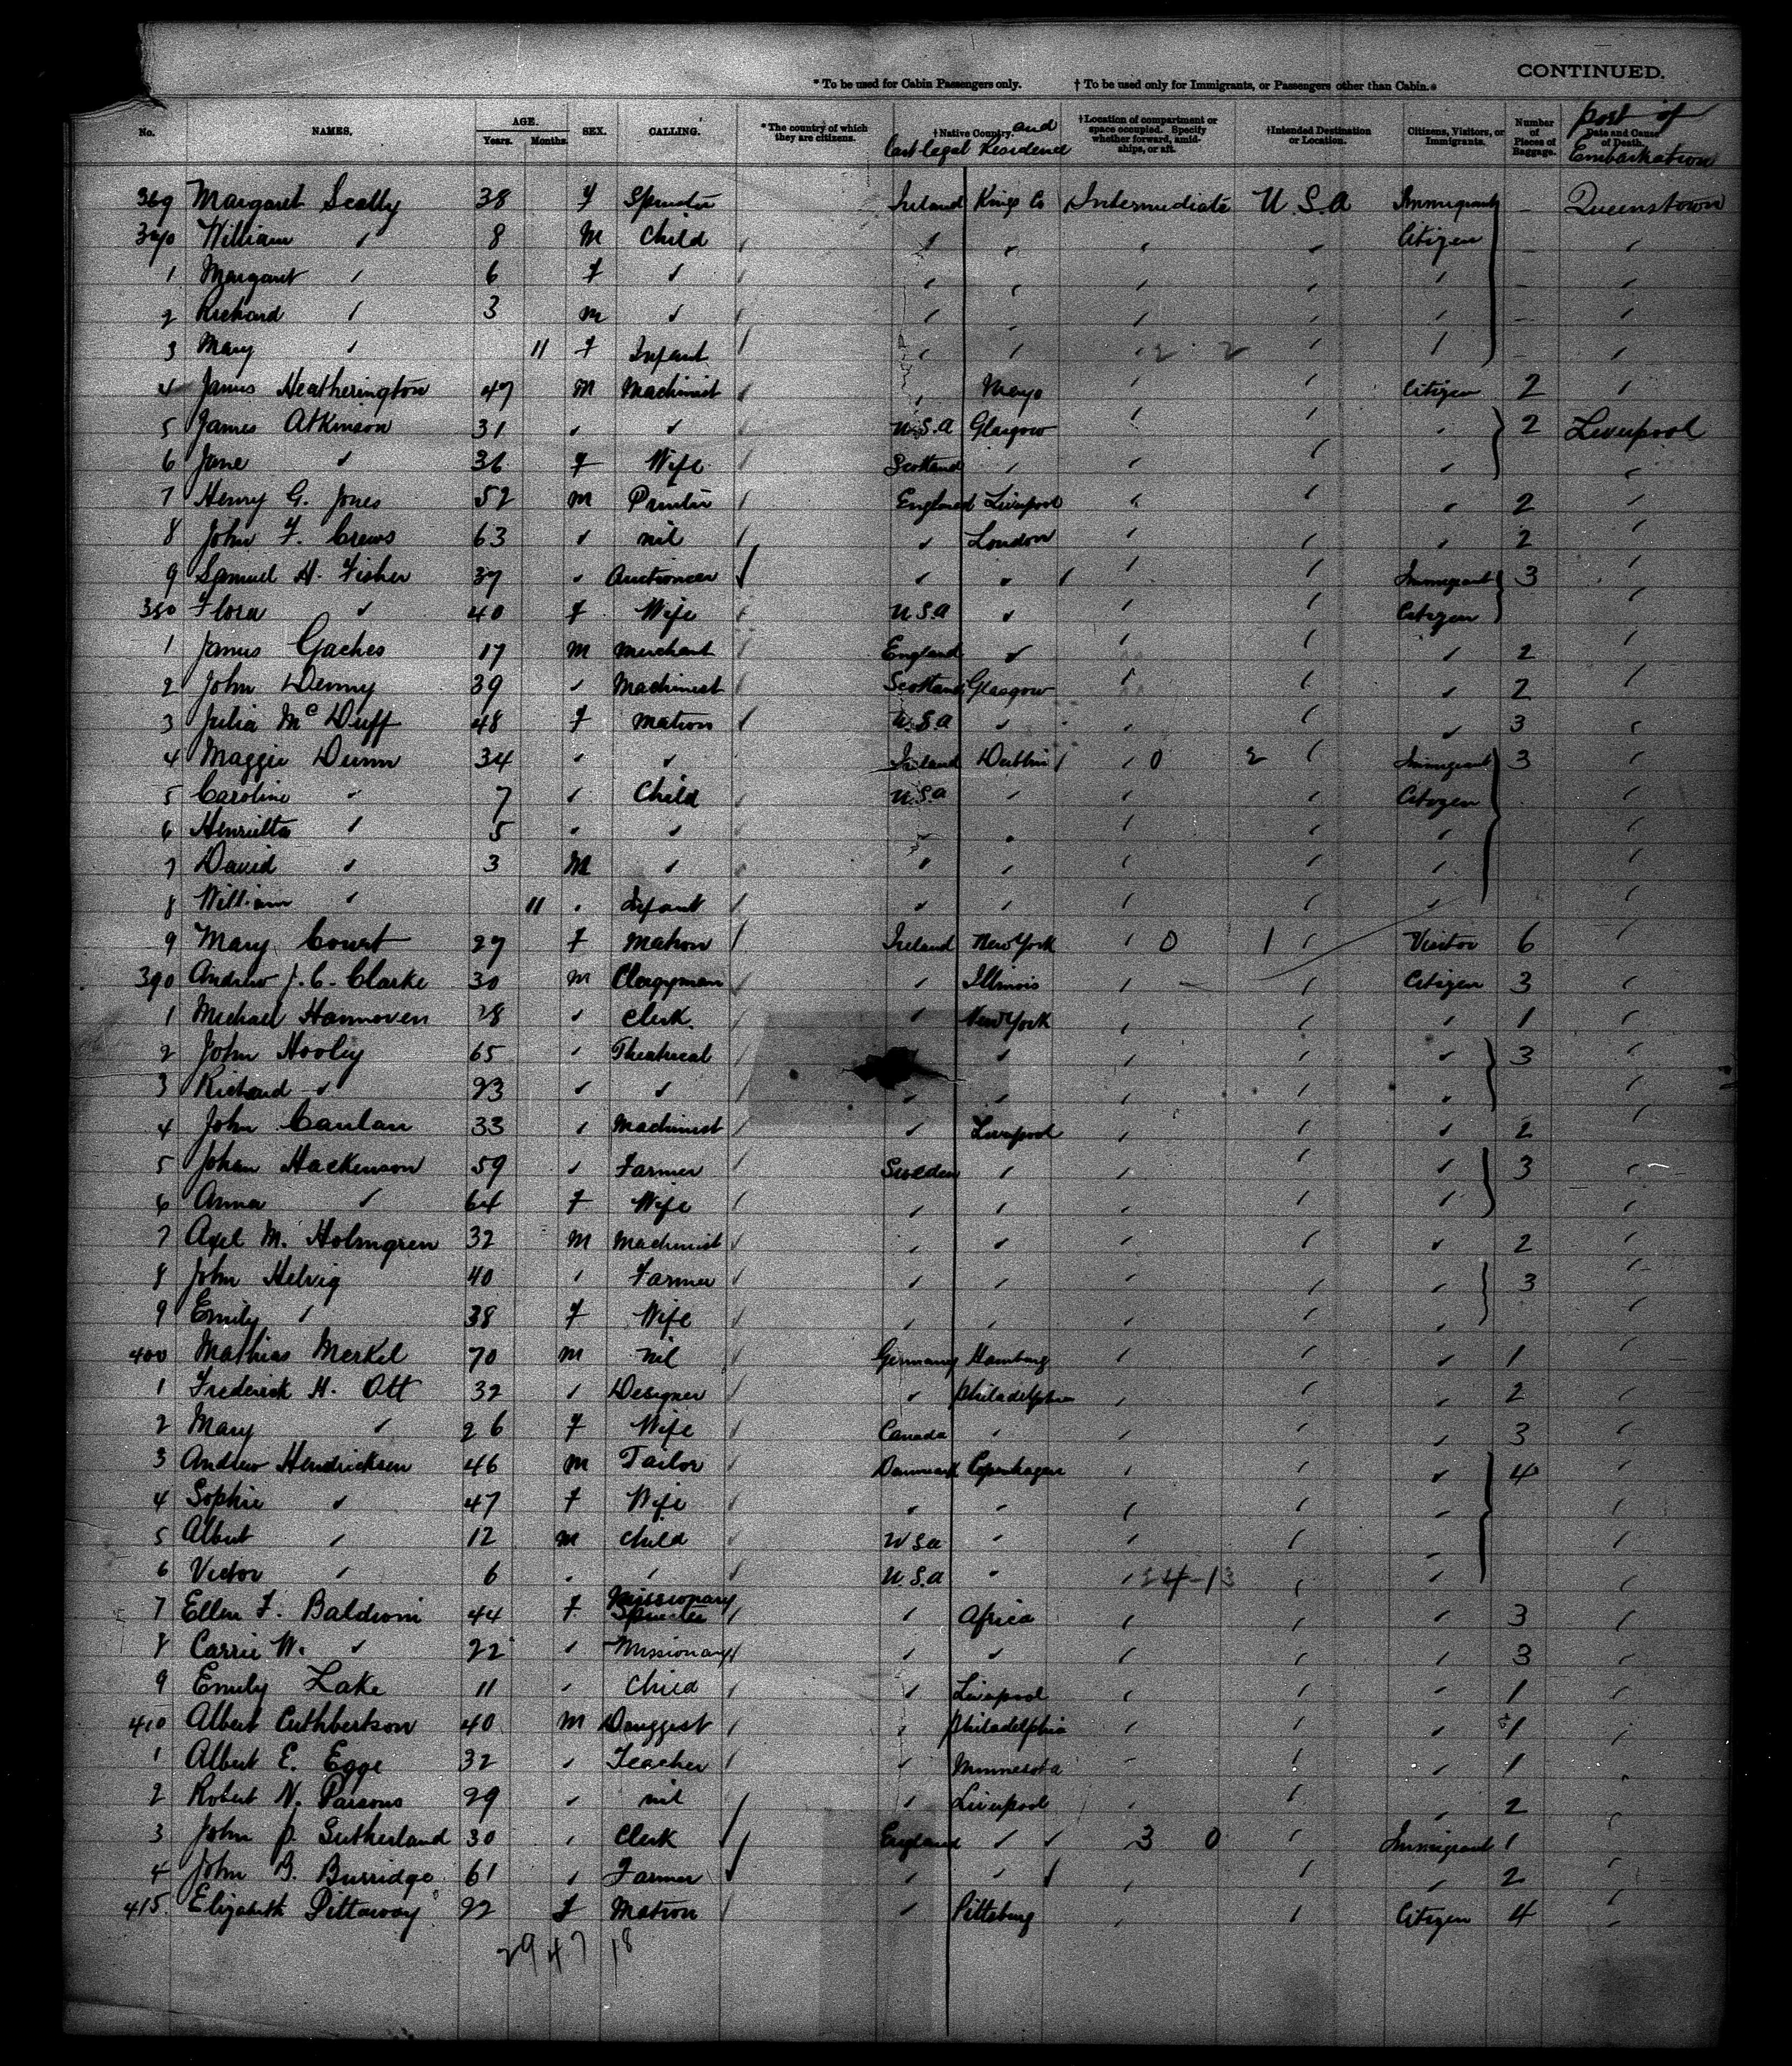 CONTINUED.
* To be used for Cabin Passengers only. † To be used only for Immigrants, or Passengers other than Cabin.
No. NAMES. AGE. Years. Months. SEX. CALLING. * The country of which they are citizens. † Native Country. and last legal Residence † Location of compartment or space occupied. Specify whether forward, amidships, or aft. † Intended Destination or Location. Citizens, Visitors, or Immigrants. Number of Pieces of Baggage. Date and Cause of Death. port of Embarkation
369 Margaret Scally 38 F Spinster Ireland Kings Co Intermediate U.S.A Immigrant Queenstown
370 William " 8 M Child " " " " Citizen "
1 Margaret " 6 F " " " " " " "
2 Richard " 3 M " " " " " " "
3 Mary " 11 F Infant " " " 2 2 " "
4 James Heatherington 47 M Machinist " Mayo " " Citizen 2 "
5 James Atkinson 31 " " U.S.A Glasgow " " " 2 Liverpool
6 Jane " 36 F Wife Scotland " " " " "
7 Henry G. Jones 52 M Printer England Liverpool " " " 2 "
8 John F. Crews 63 " nil " London " " " 2 "
9 Samuel H. Fisher 37 " Auctioneer " " " " Immigrant 3 "
380 Flora " 40 F Wife U.S.A " " " Citizen "
1 James Gaches 17 M Merchant England " " " " 2 "
2 John Denny 39 " Machinist Scotland Glasgow " " " 2 "
3 Julia McDuff 48 F Matron U.S.A " " " " 3 "
4 Maggie Dunn 34 " " Ireland Dublin " 0 2 " Immigrant 3 "
5 Caroline " 7 " Child U.S.A " " " Citizen "
6 Henrietta " 5 " " " " " " " "
7 David " 3 M " " " " " " "
8 William " 11 " Infant " " " " " "
9 Mary Court 27 F Matron Ireland New York " 0 1 " Visitor 6 "
390 Andrew J. C. Clarke 30 M Clergyman " Illinois " " Citizen 3 "
1 Michael Hannoven 28 " Clerk. " New York " " " 1 "
2 John Hooley 65 " Theatrical " " " " 3 "
3 Richard " 23 " " " " " " " "
4 John Canlan 33 " Machinist " Liverpool " " " 2 "
5 Johan Hackenson 59 " Farmer Sweden " " " " 3 "
6 Anna " 64 F Wife " " " " " "
7 Axel M. Holmgren 32 M Machinist " " " " " 2 "
8 John Helvig 40 " Farmer " " " " " 3 "
9 Emily " 38 F Wife " " " " " "
400 Mathias Merkel 70 M nil Germany Hamburg " " " 1 "
1 Frederick H. Ott 32 " Designer " Philadelphia " " " 2 "
2 Mary " 26 F Wife Canada " " " " 3 "
3 Andrew Hendricksen 46 M Tailor Danmark Copenhagen " " " 4 "
4 Sophie " 47 F Wife " " " " " "
5 Albert " 12 M Child U S a " " " " "
6 Victor " 6 " " U.S.A " " " " "
7 Ellen F. Baldwin 44 F Missionary Spinster " Africa " " " 3 "
8 Carrie W. " 22 " Missionary " " " " " 3 "
9 Emily Lake 11 " Child " Liverpool " " " 1 "
410 Albert Cuthbertson 40 M Druggist " Philadelphia " " " 1 "
1 Albert E. Egge 32 " Teacher " Minnesota " " " 1 "
2 Robert N. Parsons 29 " nil " Liverpool " " " 2 "
3 John P. Sutherland 30 " Clerk England " " 3 0 " Immigrant 1
4 John B. Burridge 61 " Farmer " " " " " 2 "
415. Elizabeth Pittaway 22 F Matron " Pittsburg " " Citizen 4 "
29 47 18